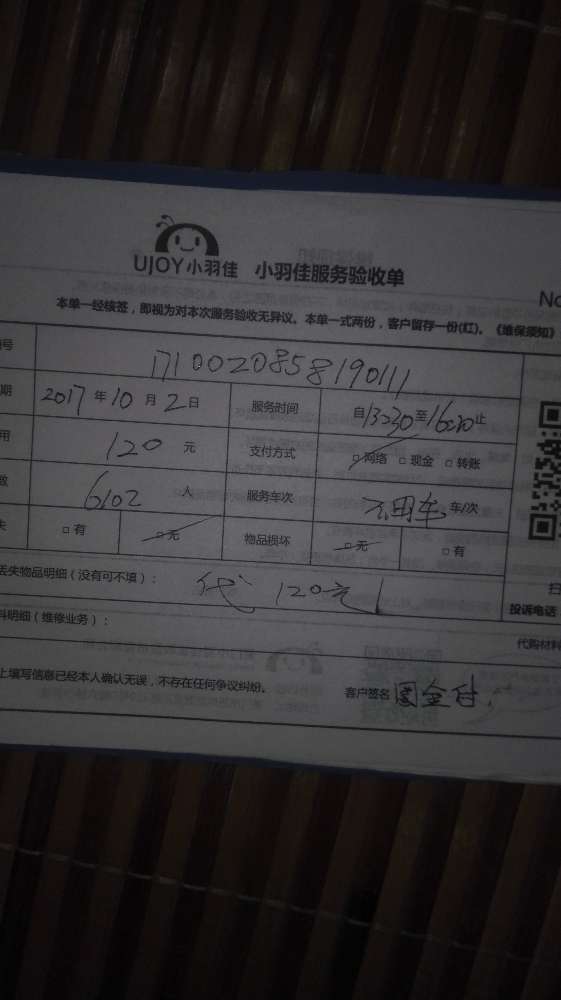 UJOY小羽佳 小羽佳服务验收单
No
本单一经核签，即视为对本次服务验收无异议。本单一式两份，客户留存一份(红)。《维保须知》
号 171002085819011
期 2017年10月2日 服务时间 自13:30至16:30止
用 120元 支付方式 □网络 □现金 □转账
数 6102人 服务车次 不用车 车/次
失 □有 □无 物品损坏 □无 □有
丢失物品明细（没有可不填）： 代 120元
投诉电话
料明细（维修业务）：
代购材料
上填写信息已经本人确认无误，不存在任何争议纠纷。 客户签名